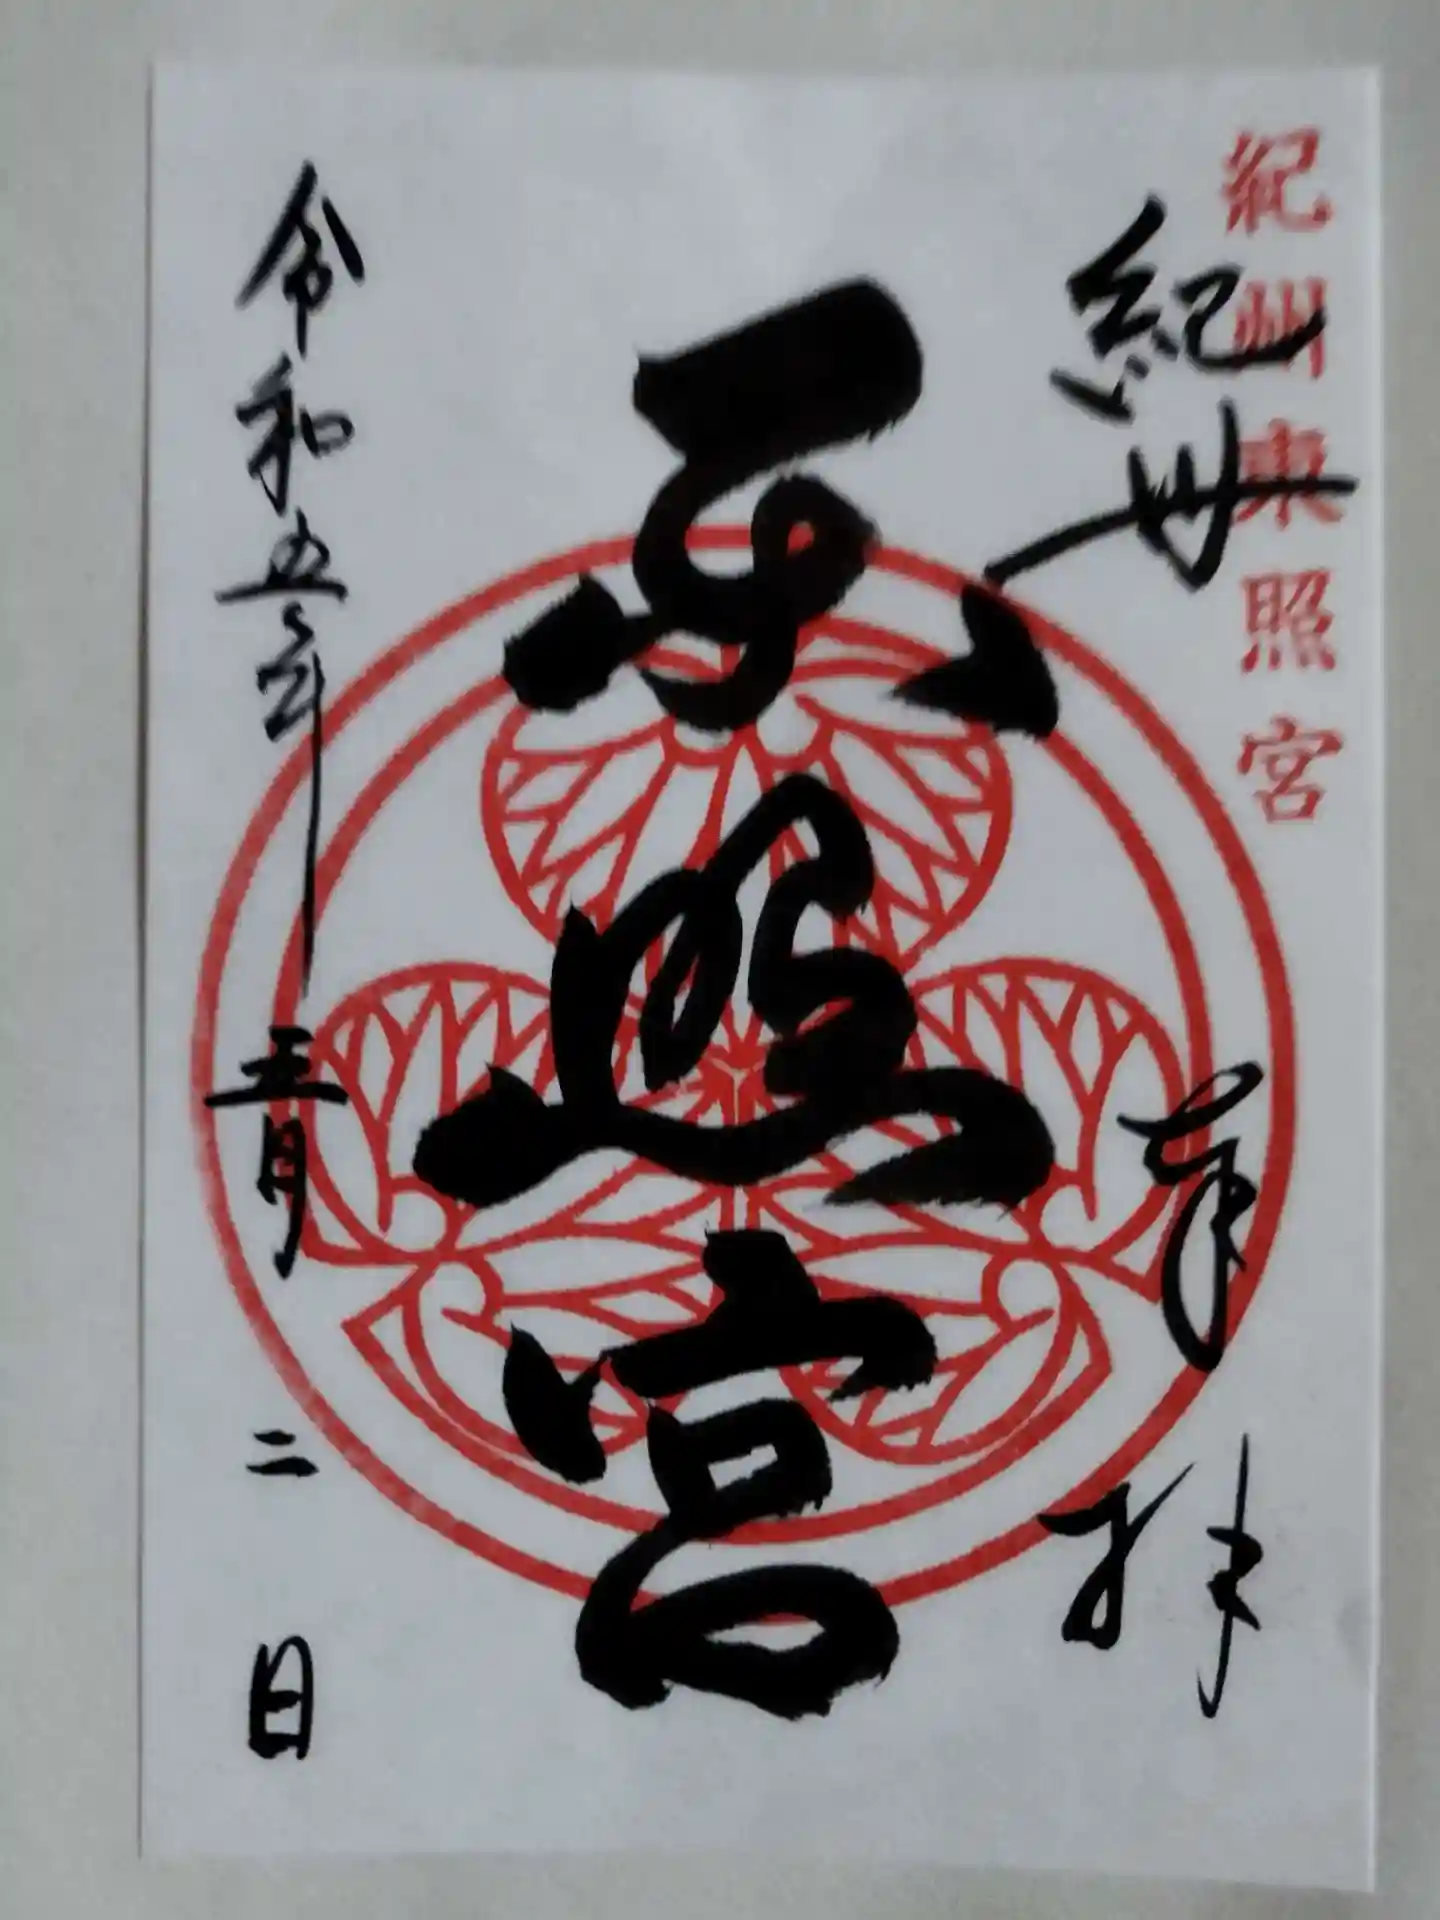 紀州東照宮
紀州
奉拝
東照宮
令和五年三月二日